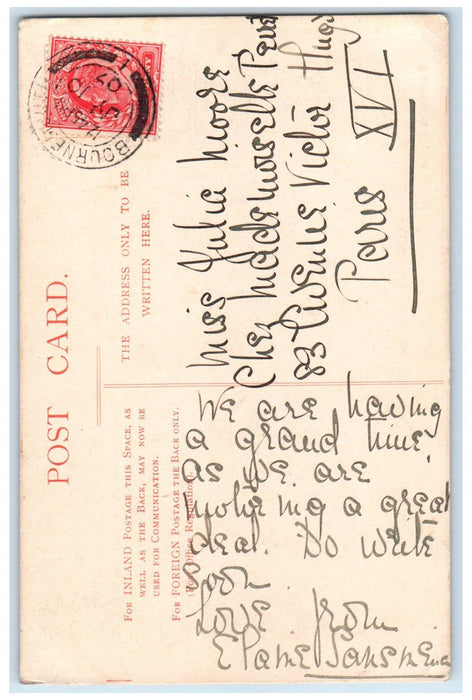 POST CARD.
FOR INLAND POSTAGE THIS SPACE, AS
WELL AS THE BACK, MAY NOW BE
USED FOR COMMUNICATION.
FOR FOREIGN POSTAGE THE BACK ONLY.
THE ADDRESS ONLY TO BE
WRITTEN HERE.
BOURNE
07
Miss Julia Moore
Chez Mademoiselle
83 Avenue Victor Hugo
Paris XVI
We are having
a grand time
as we are
motoring a great
deal. Do write
Soon
Love from
Elaine